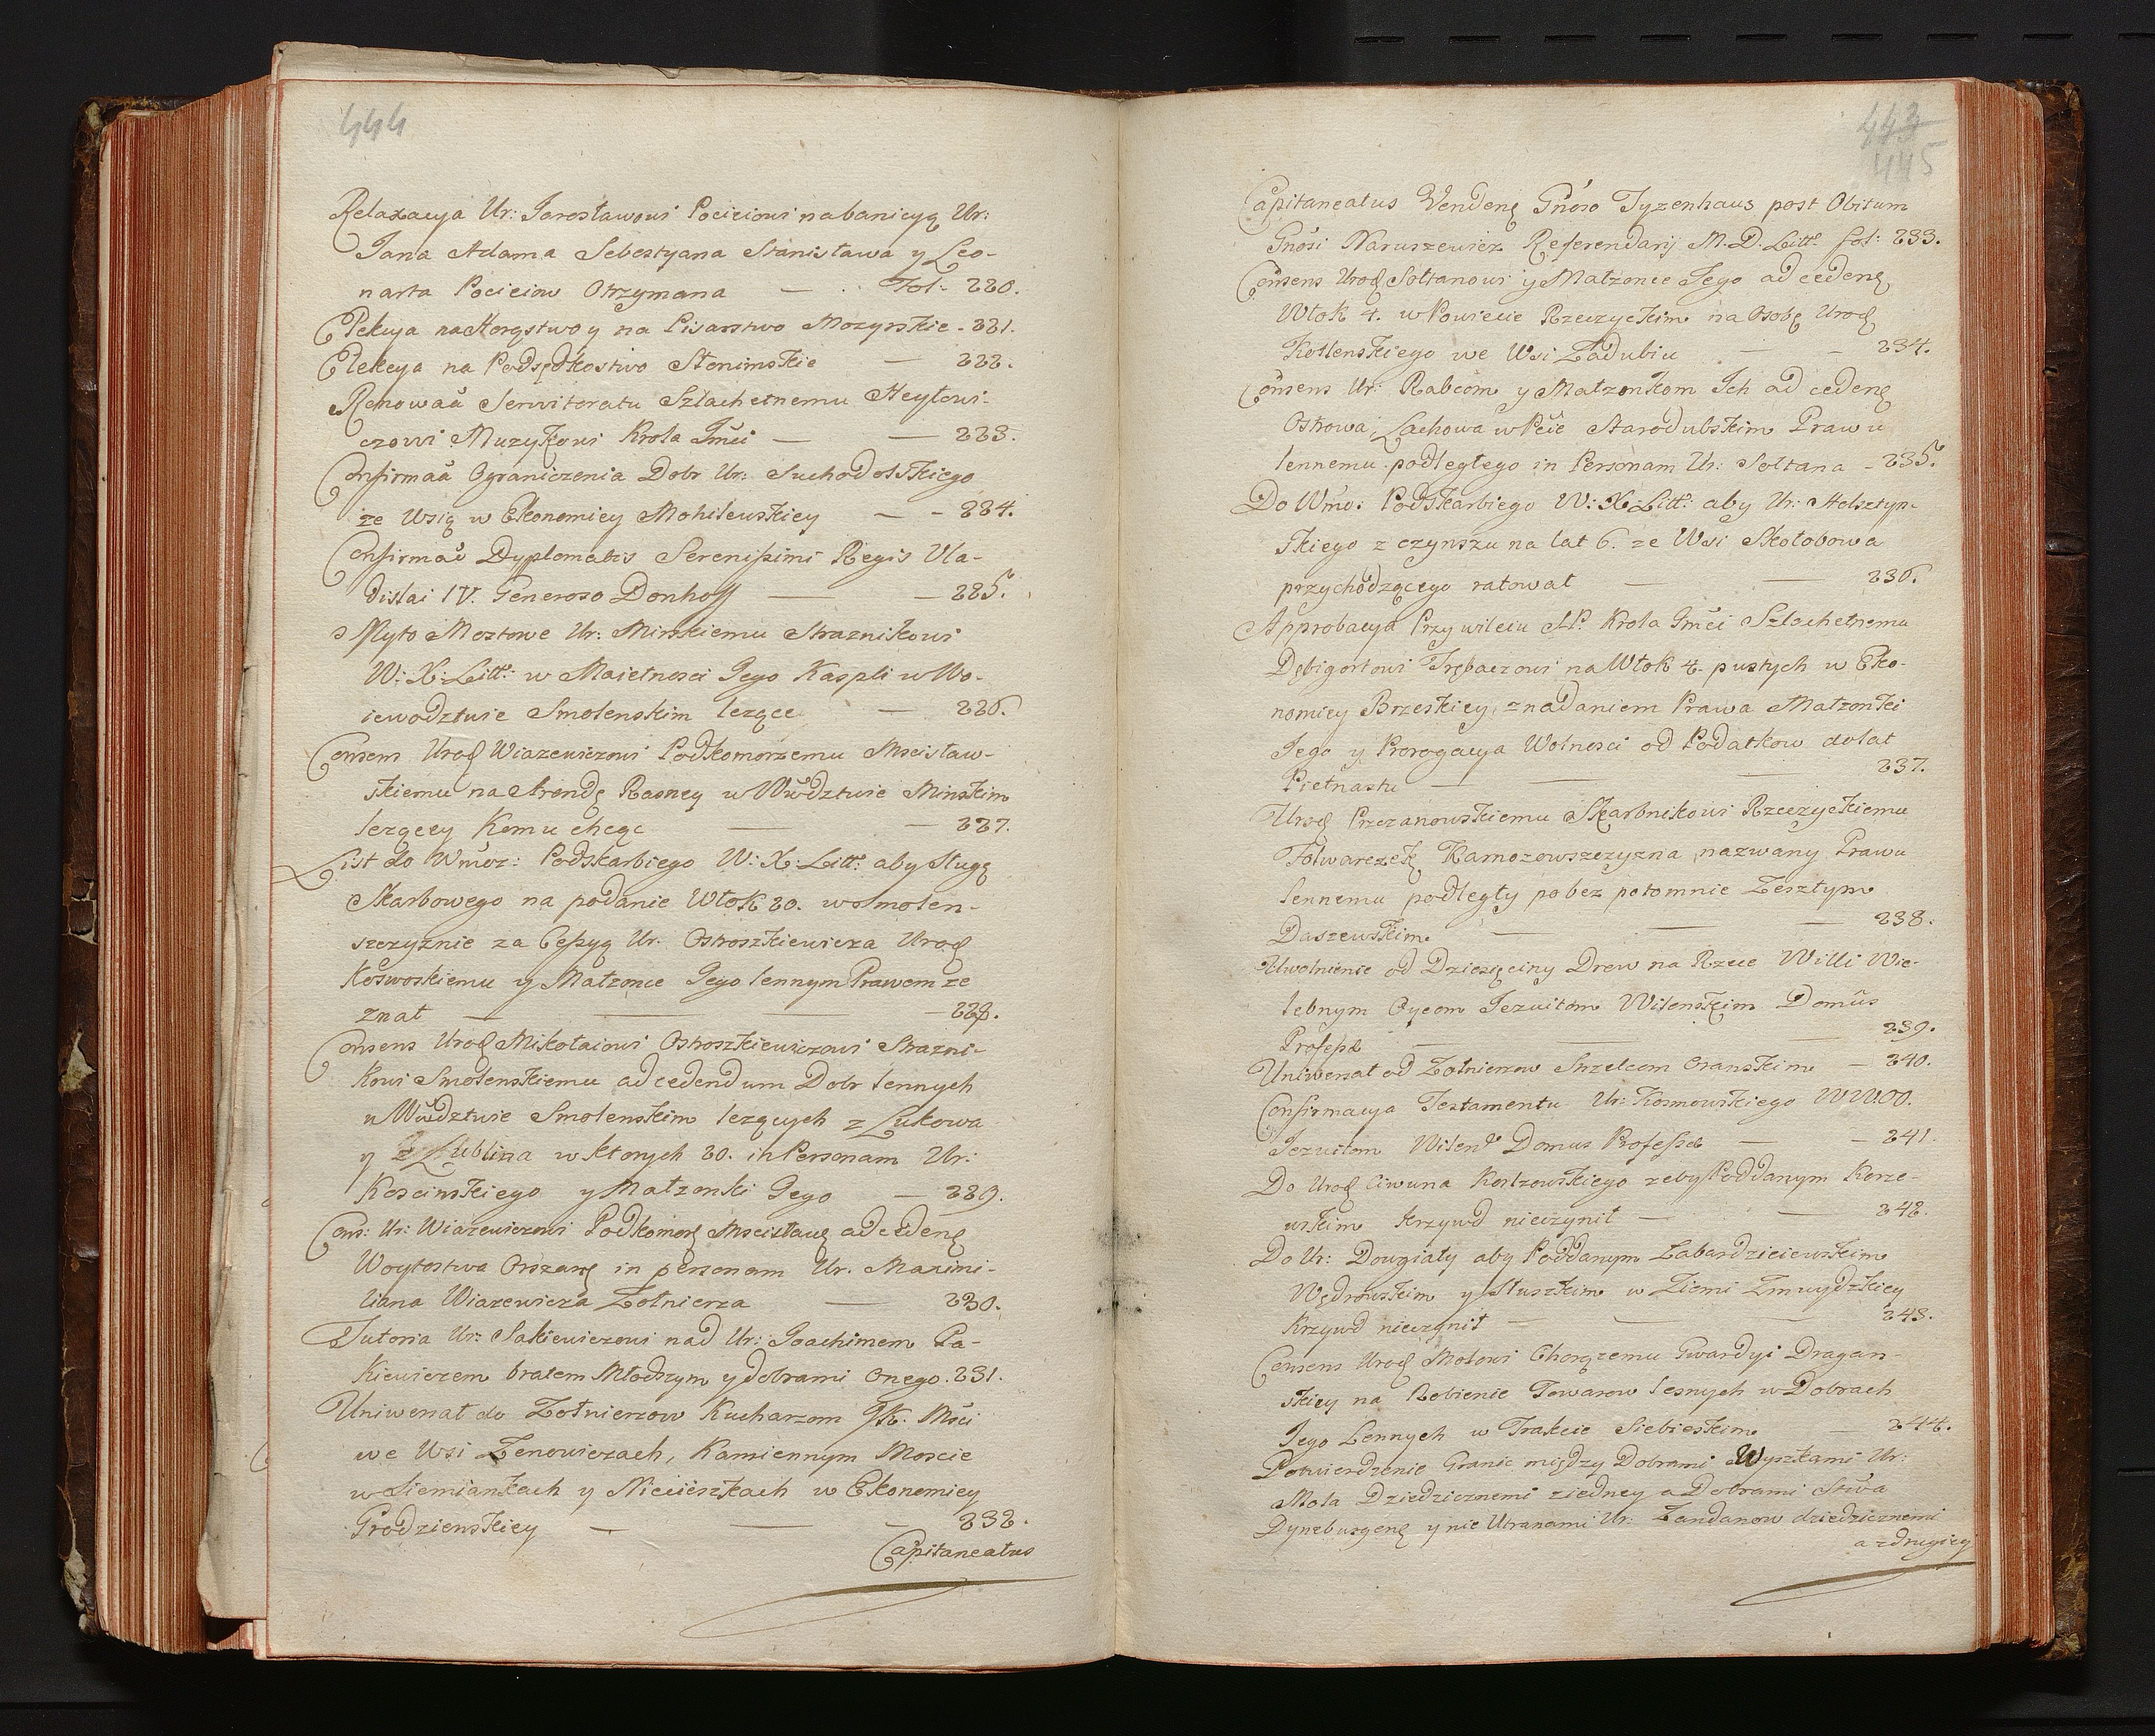 444
Relaxacya Ur: Jarosławowi Pocieiowi nabanicyą Ur:
Jana Adama Sebestyana Stanisława y Leo-
narta Pocieiow Otrzymana — Fol: 220.
Elekcya na Horąstwo y na Pisarstwo Mozyrskie - 221.
Elekcya na Podsędkostwo Słonimskie — 222.
Renowaã Serwitoratu Szlachetnemu Heyłowi-
czowi Muzykowi Krola Jmći — — 223.
Confirmaã Ograniczenia Dobr Ur: Suchodolskiego
ze Wsią w Ekonomiey Mohilewskiey — - 224.
Confirmaõ Dyplomatis Serenissimi Regis Vla-
dislai IV. Generoso Donhoff — — 225.
Myto Mostowe Ur: Mirskiemu Straznikowi
W: X: Litt: w Maietnosci Jego Kaspli w Wo-
iewodztwie Smolenskim lezące — 226.
Consens Urod Wiazewiczowi Podkomorzemu Mscisław-
skiemu na Arendę Rasney w Wwdztwie Minskim
lezącey Komu chcąc — — 227.
List do Wmoz: Podskarbiego W: X: Litt: aby Sługę
Skarbowego na podanie Włok 20. w Smolen-
szczyznie za Cessyą Ur. Ostroszkiewicza Urod
Koswoskiemu y Małzonce Jego lennym Prawem ze
znał — — — 228.
Consens Urod Mikołaiowi Ostroszkiewiczowi Strazni-
kowi Smolenskiemu ad cedendum Dobr lennych
w Wwdztwie Smolenskim lezących z Lukowa
y z Lublina w ktorych 20. in Personam Ur:
Koscinskiego y Małzonki Jego — 229.
Cons: Ur: Wiazewiczowi Podkomorz Mscisławs ad cedenę
Woytostwa Orszans in personam Ur. Maximi-
liana Wiazewicza Zołnierza — 230.
Tutoria Ur: Sakiewiczowi nad Ur: Joachimem Sa-
kiewiczem bratem Młodszym y dobrami onego. 231.
Uniwersał do Zołnierzow Kucharzom JK. Mści
we Wsi Zenowiczach, Kamiennym Moscie
w Siemiankach y Niecieszkach w Ekonomiey
Grodzienskiey — — - 232.
Capitaneatus
443
445
Capitaneatus Vendenę Gñoso Tyzenhaus post Obitum
Gñosi Naruszewicz Referendarij M. D. Litt: fol: 233.
Consens Urod Sołtanowi y Małzonce Jego ad cedenę
Włok 4. w Powiecie Rzeczyckim na Osobę Urod
Kottenskiego we Wsi Zadubiu — - 234.
Consens Ur: Rabcom y Małzonkom Ich ad cedenę
Ostrowa, Lachowa w Pcie Starodubskim Prawu
lennemu podległego in Personam Ur: Sołtana - 235.
Do Wmo: Podskarbiego W: X: Litt: aby Ur: Holsztyn-
skiego z czynszu na lat 6. ze Wsi Skołobowa
przychodzącego ratował — — 236.
Approbacya Przywileiu SP. Krola Jmći Szlachetnemu
Dębigortowi Trębaczowi na Włok 4. pustych w Eko-
nomiey Brzeskiey, z nadaniem Prawa Małzonki
Jego y Prorogacya Wolnosci od Podatkow do lat
Pietnastu — — — 237.
Urod Przezanowskiemu Skarbnikowi Rzeczyckiemu
Folwarczek Karnozowszczyzna nazwany Prawu
lennemu podległy po bez potomnie Zeszłym
Daszewskim — — — 238.
Uwolnienie od Dziesięciny Drew na Rzece Willi Wie-
lebnym Oycom Jezuitom Wilenskim Domûs
Professæ — — — 239.
Uniwersał od Zołnierzow Strzelcom Oranskim — 240.
Confirmacya Testamentu Ur: Kosmowskiego WWOO.
Jezuitom Wilens Domus Professæ — - 241.
Do Urod Ciwuna Korszowskiego zeby Poddanym Korze-
wskim krzywd nieczynił — — 242.
Do Ur: Dowgiały aby Poddanym Labardzieiewskim
Wędrowskim y Słuszkim w Ziemi Zmuydzkiey
Krzywd nieczynił — — 243.
Consens Urod Mołowi Chorązemu Gwardyi Dragan-
skiey na Robienie Towarow lesnych w Dobrach
Jego Lennych w Trakcie Siebieskim — 244.
Potwierdzenie Granic między Dobrami Wyszkami Ur:
Mola Dziedzicznemi ziedney a Dobrami Stwa
Dyneburgenę y nie Utranami Ur: Zandanow dziedzicznemi
a zdrugiey